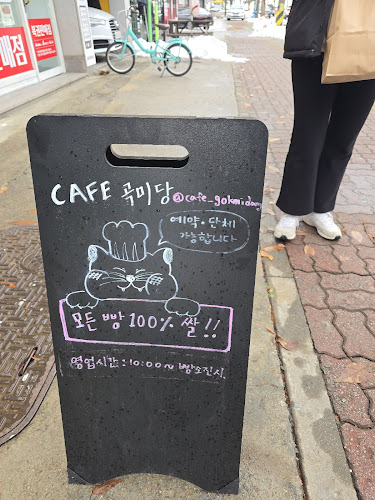 CAFE 곡미당 @cafe_gokmidang
예약·단체
가능합니다
모든 빵 100% 쌀!!
영업시간 : 10:00~ 빵소진시.
CAFE 곡미당